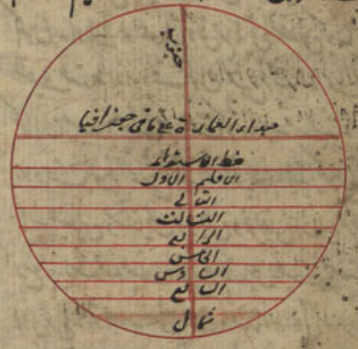 جنوب
مبداء العمارة على ما في جغرافيا
خط الاستواء
الاقليم الاول
الثاني
الثالث
الرابع
الخامس
السادس
السابع
شمال